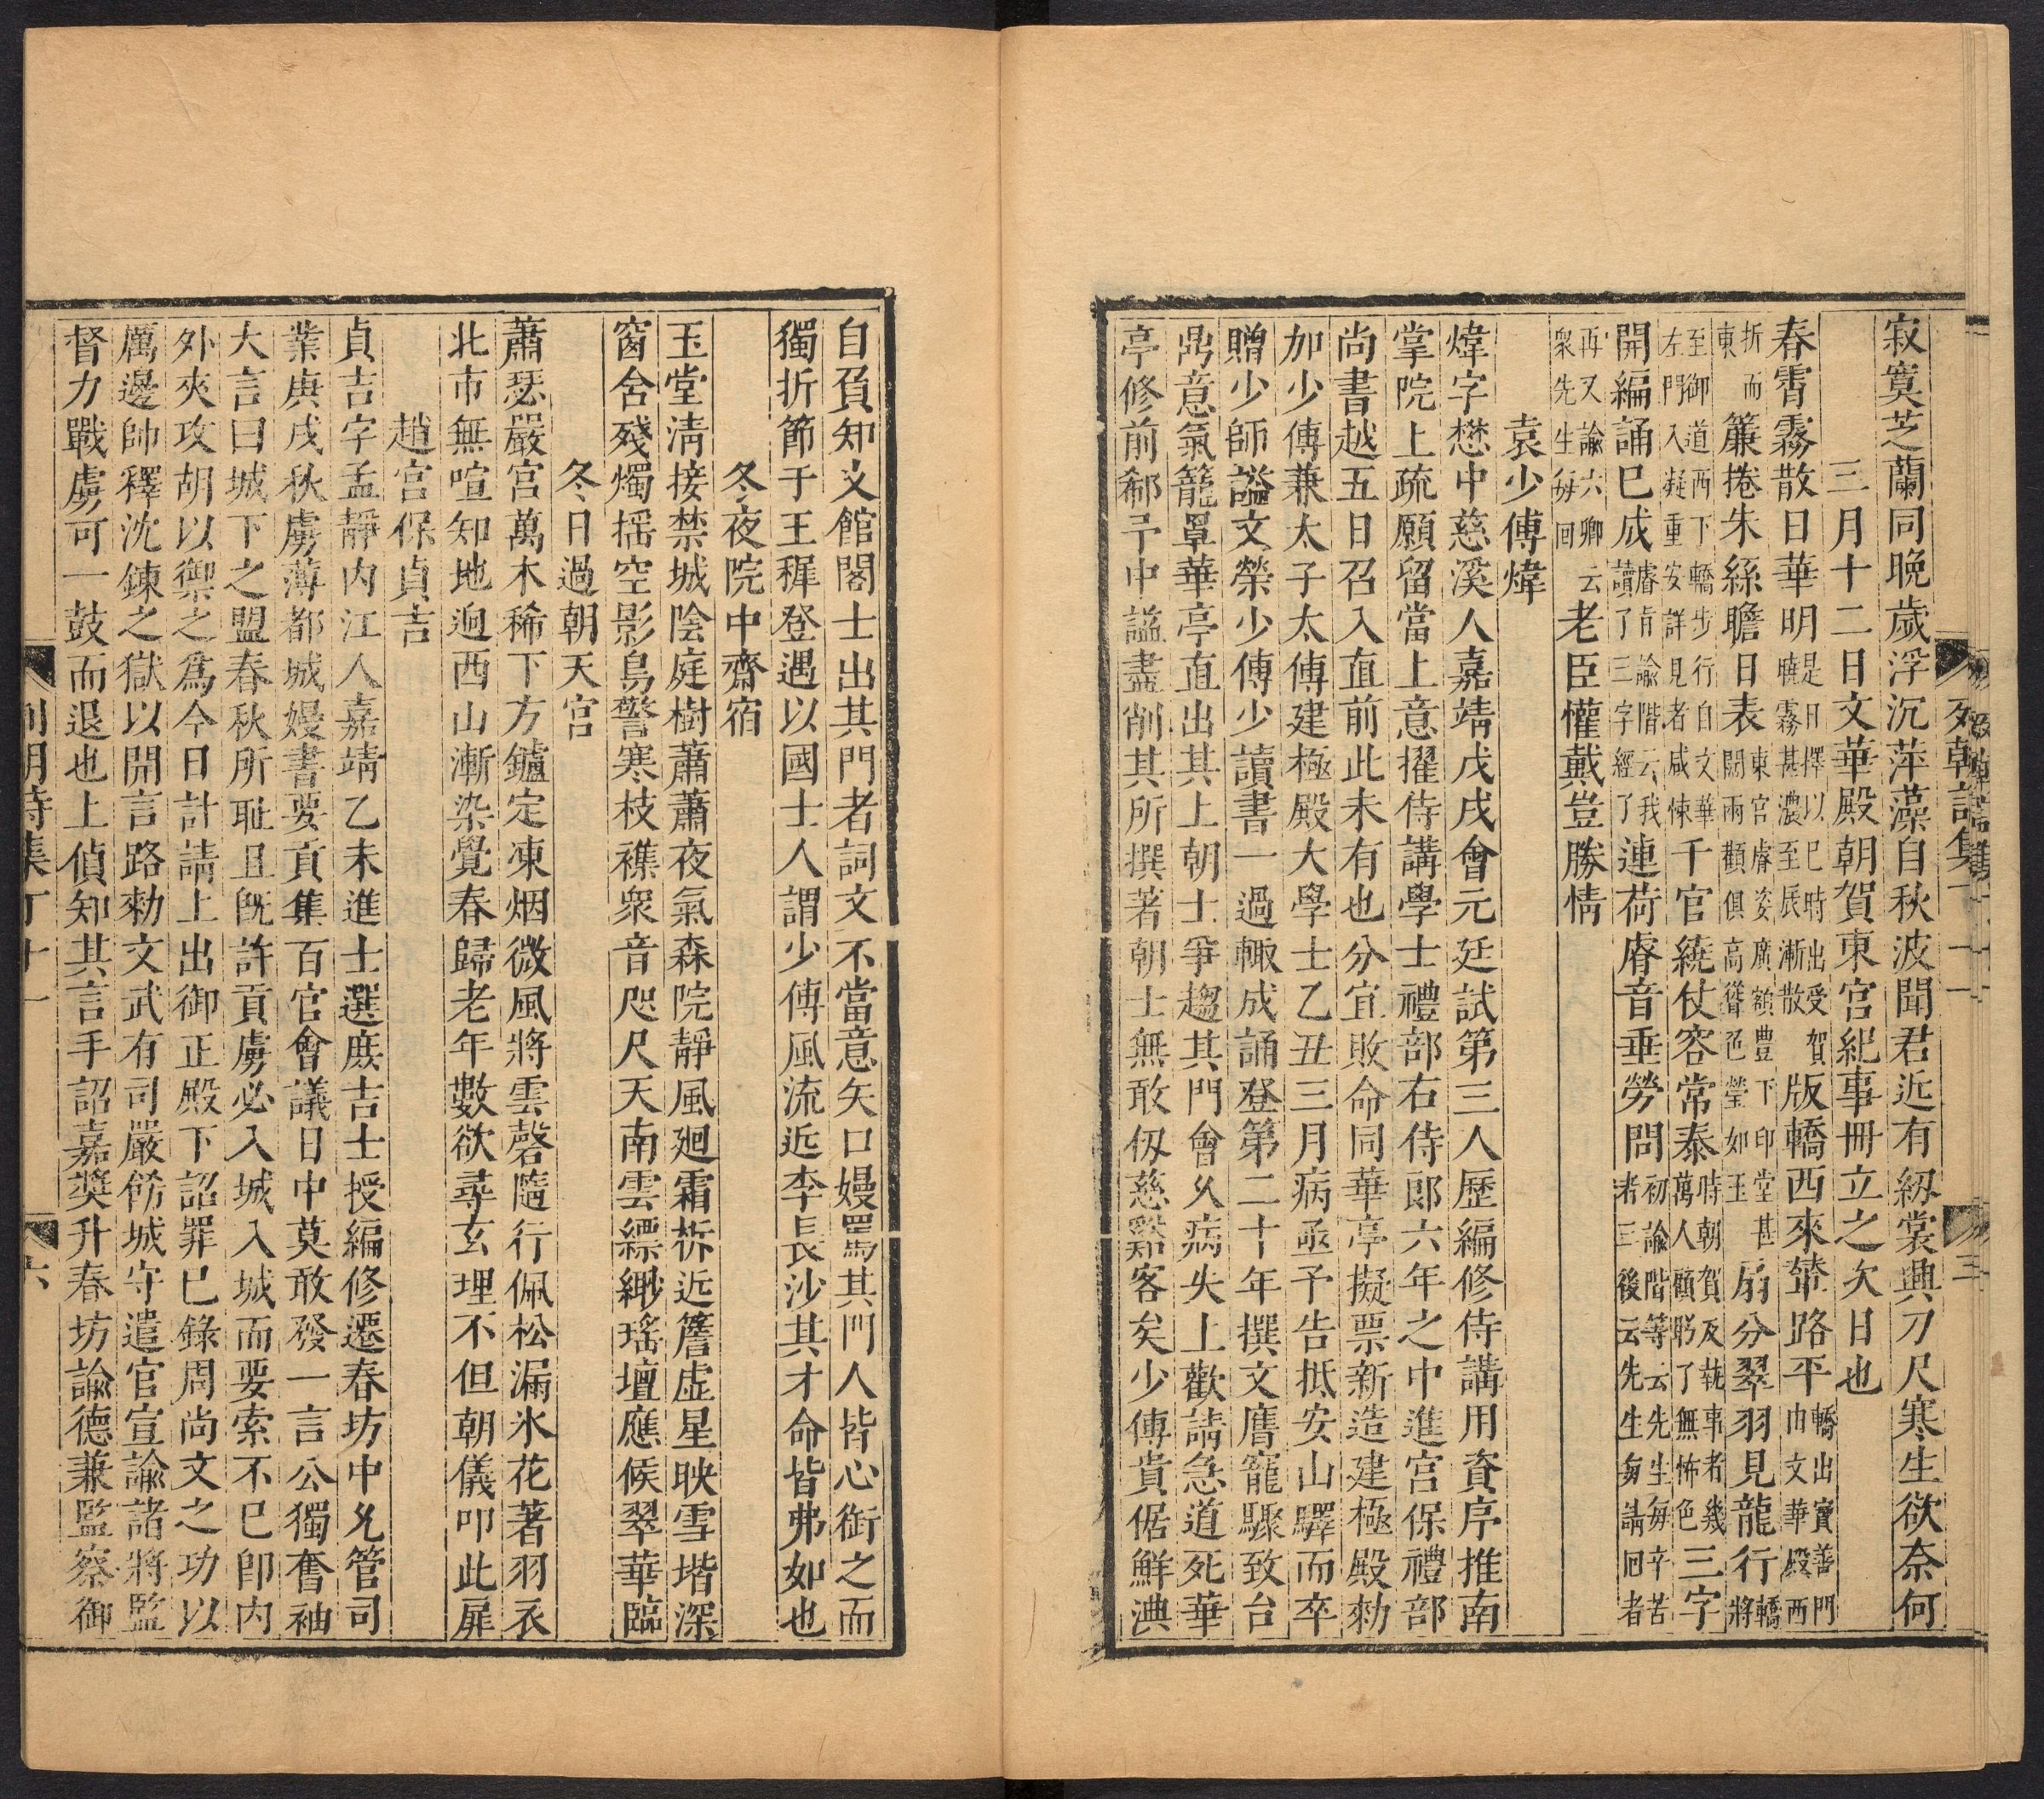 列朝詩集丁十一 三
寂寞芝蘭同晚歲浮沉萍藻自秋波聞君近有紉裳興刀尺寒生欲奈何
三月十二日文華殿朝賀東宮紀事冊立之次日也
春霄霧散日華明是日擇以巳時出受賀曉霧甚濃至辰漸散版轎西來輦路平轎出寶善門由文華殿西
折而東簾捲朱絲瞻日表東宮睿姿廣額豐下印堂甚闊兩顴俱高聳色瑩如玉扇分翠羽見龍行轎將
至御道西下轎步行自文華左門入凝重安詳見者咸悚千官繞仗容常泰時朝賀及執事者幾萬人顧眄了無怖色三字
開編誦已成睿旨諭階云我讀了三字經了連荷睿音垂勞問初諭階等云先生每辛苦者三後云先生每請回者
再又諭六卿云衆先生每回老臣懽戴豈勝情
袁少傅煒
煒字懋中慈溪人嘉靖戊戌會元廷試第三人歷編修侍講用資序推南
掌院上疏願留當上意擢侍講學士禮部右侍郎六年之中進宮保禮部
尚書越五日召入直前此未有也分宜敗命同華亭擬票新造建極殿勑
加少傅兼太子太傅建極殿大學士乙丑三月病亟予告抵安山驛而卒
贈少師謚文榮少傅少讀書一過輙成誦登第二十年撰文膺寵驟致台
鼎意氣籠罩華亭直出其上朝士爭趨其門會久病失上歡請急道死華
亭修前郤予中謚盡削其所撰著朝士無敢伋慈谿客矣少傅貴倨鮮淟
自負知文館閣士出其門者詞文不當意矢口嫚罵其門人皆心銜之而
獨折節于王穉登遇以國士人謂少傅風流近李長沙其才命皆弗如也
冬夜院中齋宿
玉堂淸接禁城陰庭樹蕭蕭夜氣森院靜風廻霜柝近簷虛星映雪堦深
窗含殘燭摇空影鳥警寒枝襍衆音咫尺天南雲縹緲瑤壇應候翠華臨
冬日過朝天宮
蕭瑟嚴宮萬木稀下方鑪定凍烟微風將雲磬隨行佩松漏氷花著羽衣
北市無喧知地迥西山漸染覺春歸老年數欲尋玄理不但朝儀叩此扉
趙宮保貞吉
貞吉字孟靜內江人嘉靖乙未進士選庶吉士授編修遷春坊中允管司
業庚戌秋虜薄都城嫚書要貢集百官會議日中莫敢發一言公獨奮袖
大言曰城下之盟春秋所耻且旣許貢虜必入城入城而要索不已卽內
外夾攻胡以禦之爲今日計請上出御正殿下詔罪已錄周尚文之功以
厲邊帥釋沈鍊之獄以開言路勑文武有司嚴飭城守遣官宣諭諸將監
督力戰虜可一鼓而退也上偵知其言手詔嘉奬升春坊諭德兼監察御
列朝詩集丁十一 六